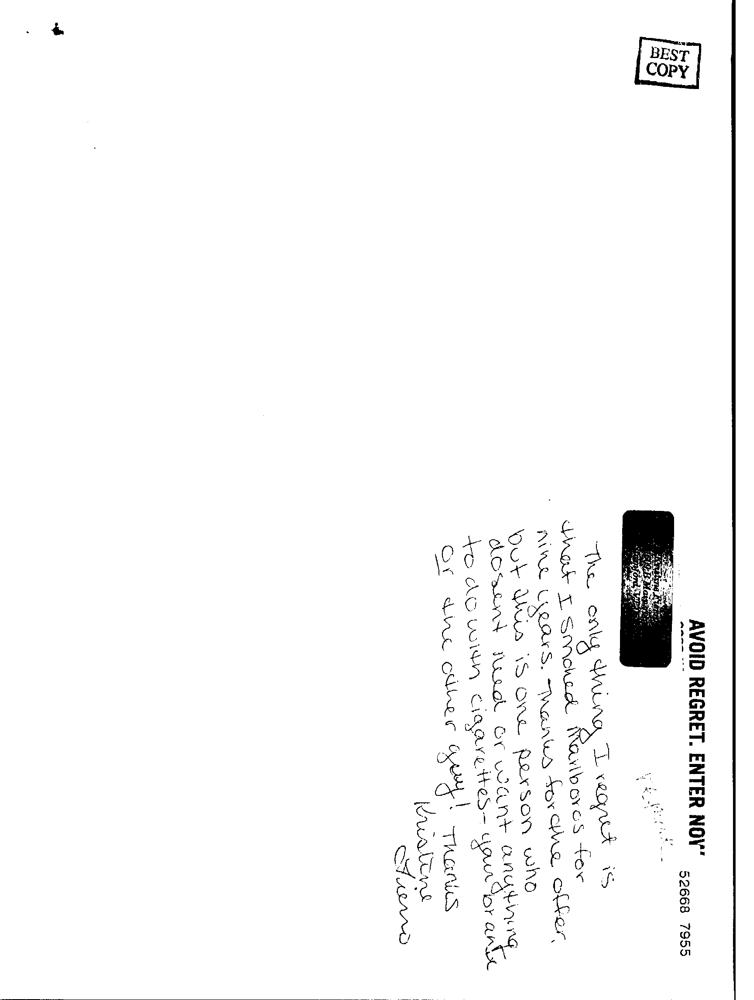 BEST
COPY
AVOID REGRET. ENTER NOW
52668 7955
The only thing I regret is
that I smoked Marlboros for
nine years. Thanks for the offer,
but this is one person who
dosent need or want anything
to do with cigarettes - your brand
or the other guy! Thanks
Kristine